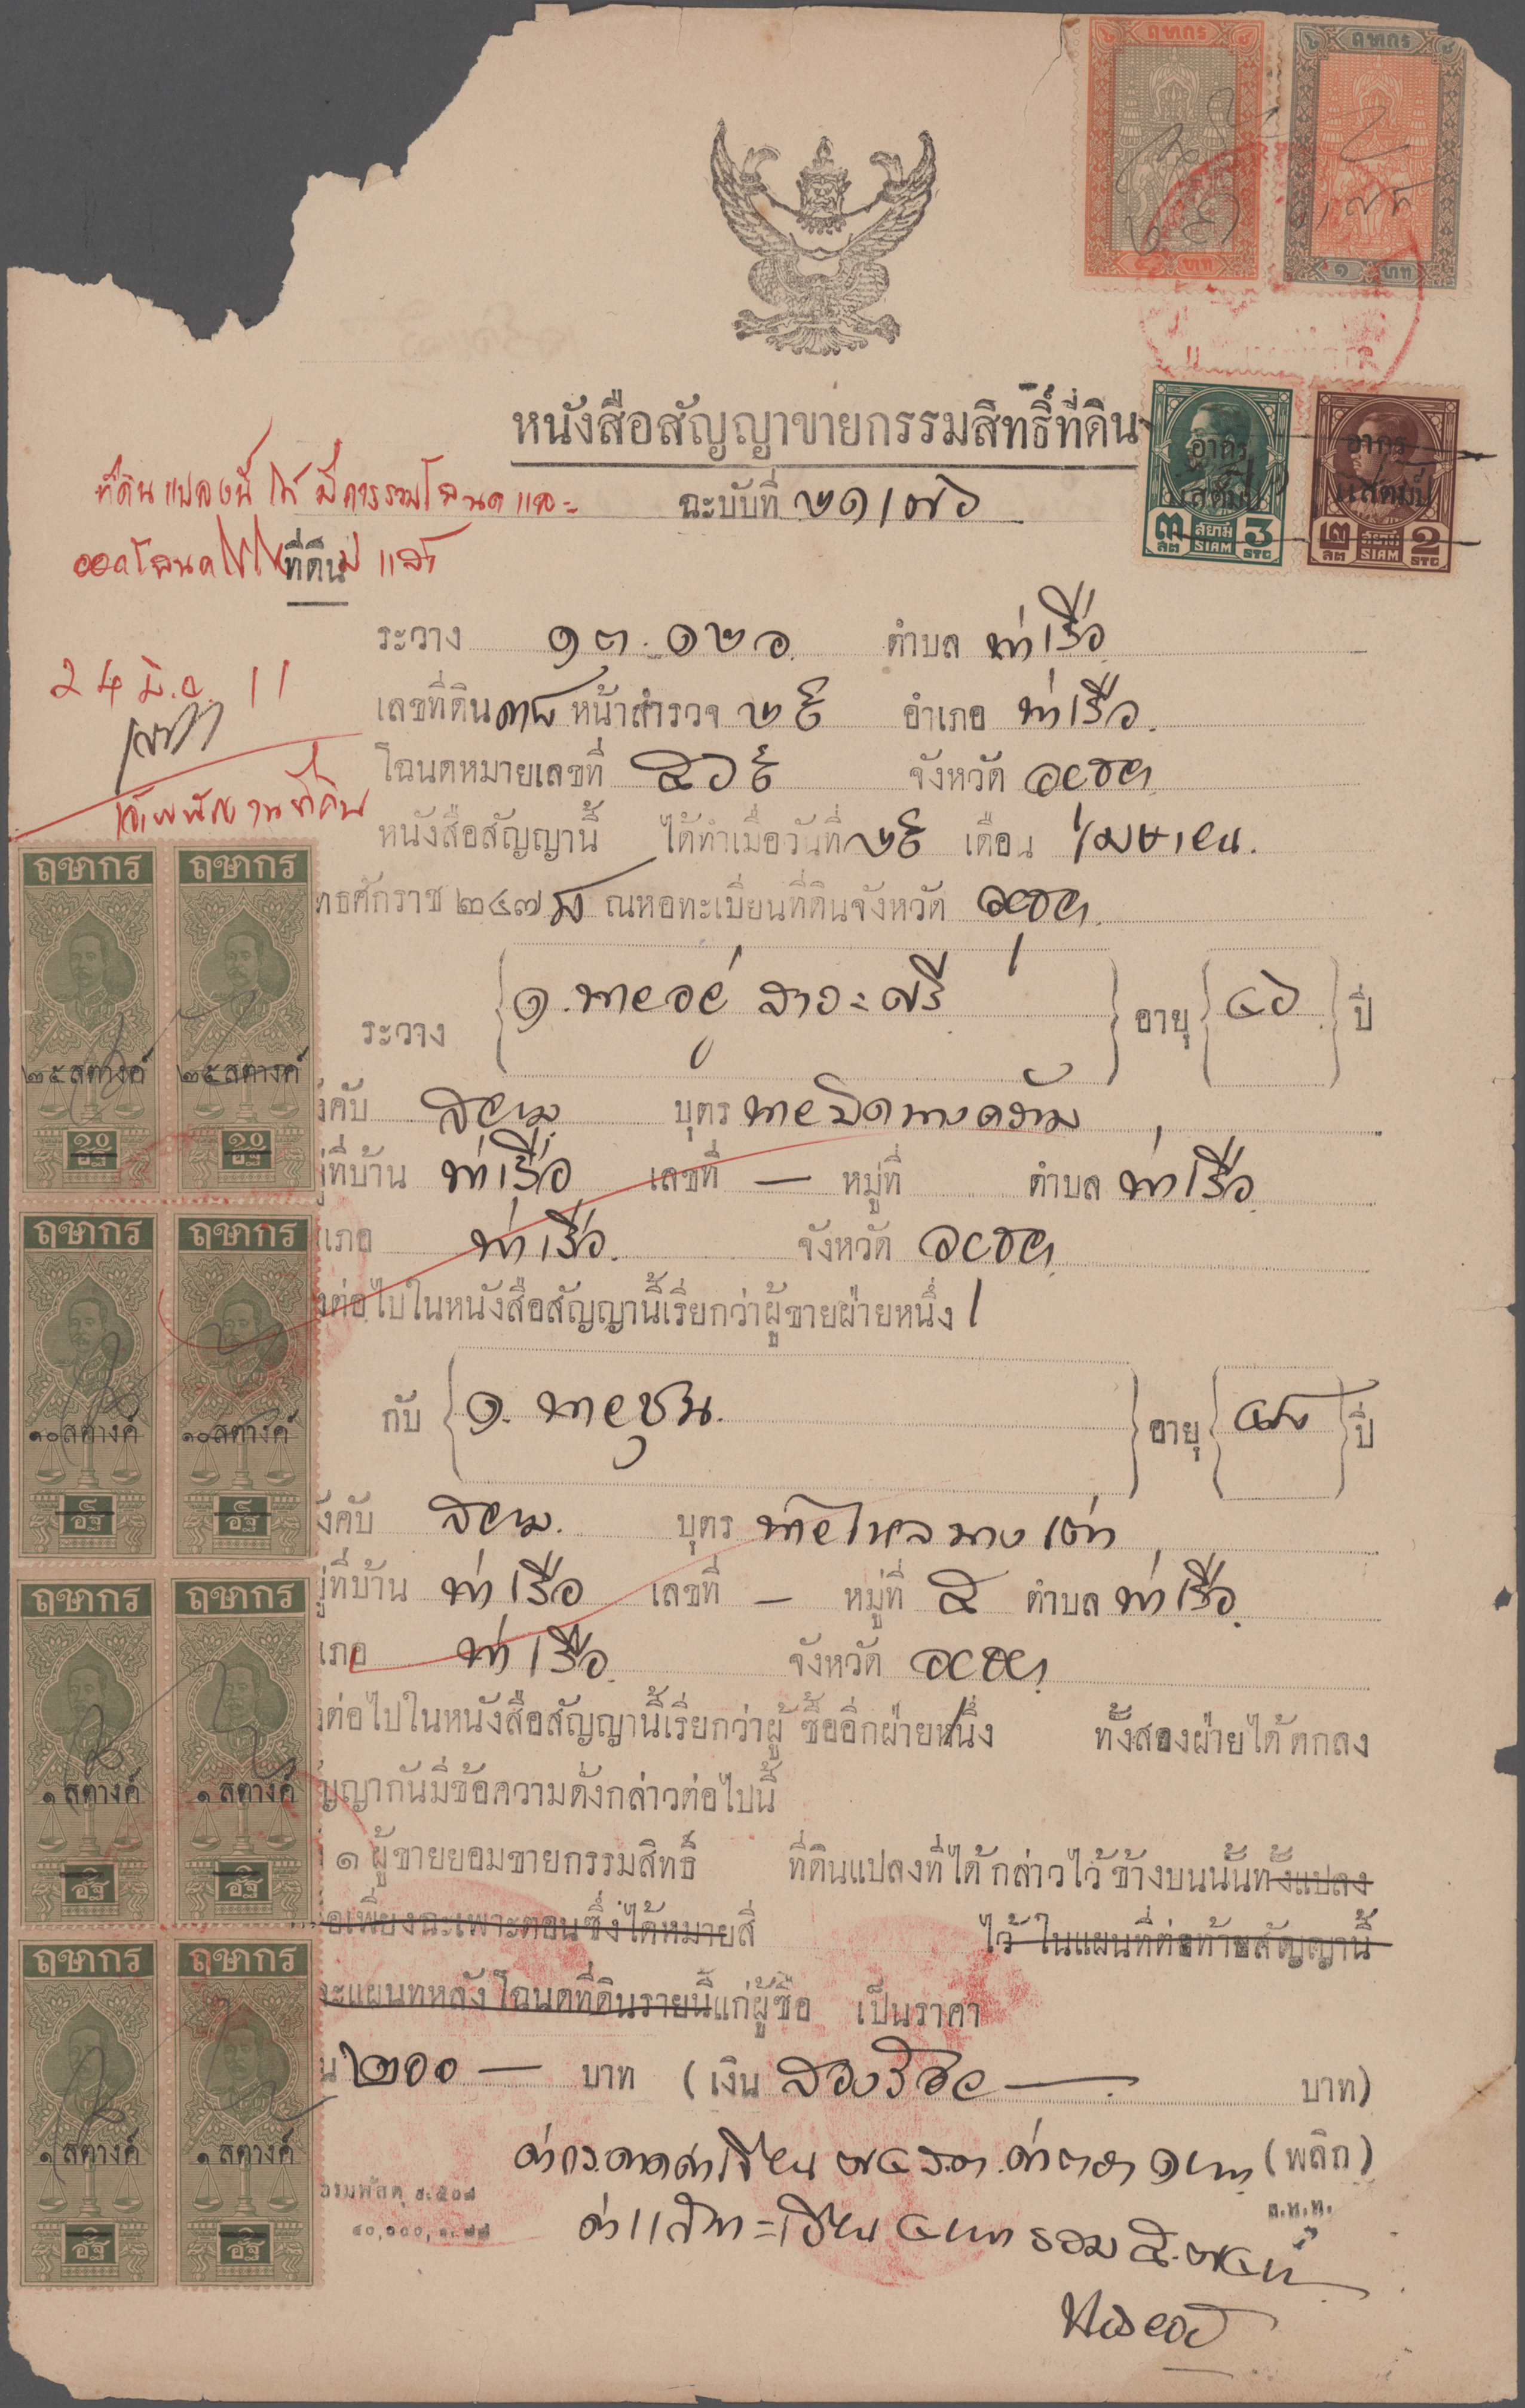 ฤชากร
ฤชากร
บาท
๑ บาท
หนังสือสัญญาขายกรรมสิทธิ์ที่ดิน
อากร
แสตมป์
๓ สต สยาม SIAM 3 STG
อากร
แสตมป์
๒ สต สยาม SIAM 2 STG
ที่ดินแปลงนี้ได้มีการรวมโฉนดและ
ออกโฉนดใหม่ แล้ว
24 มิ.ย. 11
เจ้าพนักงานที่ดิน
ฉะบับที่
ที่ดิน
ระวาง ๑๓ ๑๒ อ. ตำบล ท่าเรือ
เลขที่ดิน หน้าสำรวจ ๒๕ อำเภอ ท่าเรือ
โฉนดหมายเลขที่ จังหวัด อยุธยา
หนังสือสัญญานี้ ได้ทำเมื่อวันที่ ๒๕ เดือน เมษายน
ทธศักราช ๒๔๗ ณหอทะเบียนที่ดินจังหวัด อยุธยา
ระวาง ๑. นายอยู่ สาระศรี อายุ ๔๖ ปี
งคับ สยาม บุตร นาย
ที่บ้าน ท่าเรือ เลขที่ — หมู่ที่ ตำบล ท่าเรือ
เภอ ท่าเรือ จังหวัด อยุธยา
ต่อไปในหนังสือสัญญานี้เรียกว่าผู้ขายฝ่ายหนึ่ง
กับ ๑. นายชุน อายุ ปี
งคับ สยาม บุตร นายไหล นาง
ที่บ้าน ท่าเรือ เลขที่ — หมู่ที่ ๕ ตำบล ท่าเรือ
เภอ ท่าเรือ จังหวัด อยุธยา
ต่อไปในหนังสือสัญญานี้เรียกว่าผู้ซื้ออีกฝ่ายหนึ่ง ทั้งสองฝ่ายได้ตกลง
ญญากันมีข้อความดั่งกล่าวต่อไปนี้
๑ ผู้ขายยอมขายกรรมสิทธิ์ ที่ดินแปลงที่ได้กล่าวไว้ข้างบนนั้นทั้งแปลง
อเพียงฉะเพาะตอนซึ่งได้หมายสี ไว้ในแผนที่ต่อท้ายสัญญานี้
ะแผนที่หลังโฉนดที่ดินรายนี้แก่ผู้ซื้อ เป็นราคา
น ๒๐๐ — บาท (เงิน สองร้อย — บาท)
ค่ากระดาษค่าเขียน ๗๕ ส.ต. ค่า ๑ บาท (พลิก)
รวม ๕.๗๕ บ
ฤชากร
๒๕ สตางค์
๒๐ อัฐ
ฤชากร
๒๕ สตางค์
๒๐ อัฐ
ฤชากร
๑๐ สตางค์
อัฐ
ฤชากร
๑๐ สตางค์
อัฐ
ฤชากร
๑ สตางค์
อัฐ
ฤชากร
๑ สตางค์
อัฐ
ฤชากร
๑ สตางค์
อัฐ
ฤชากร
๑ สตางค์
อัฐ